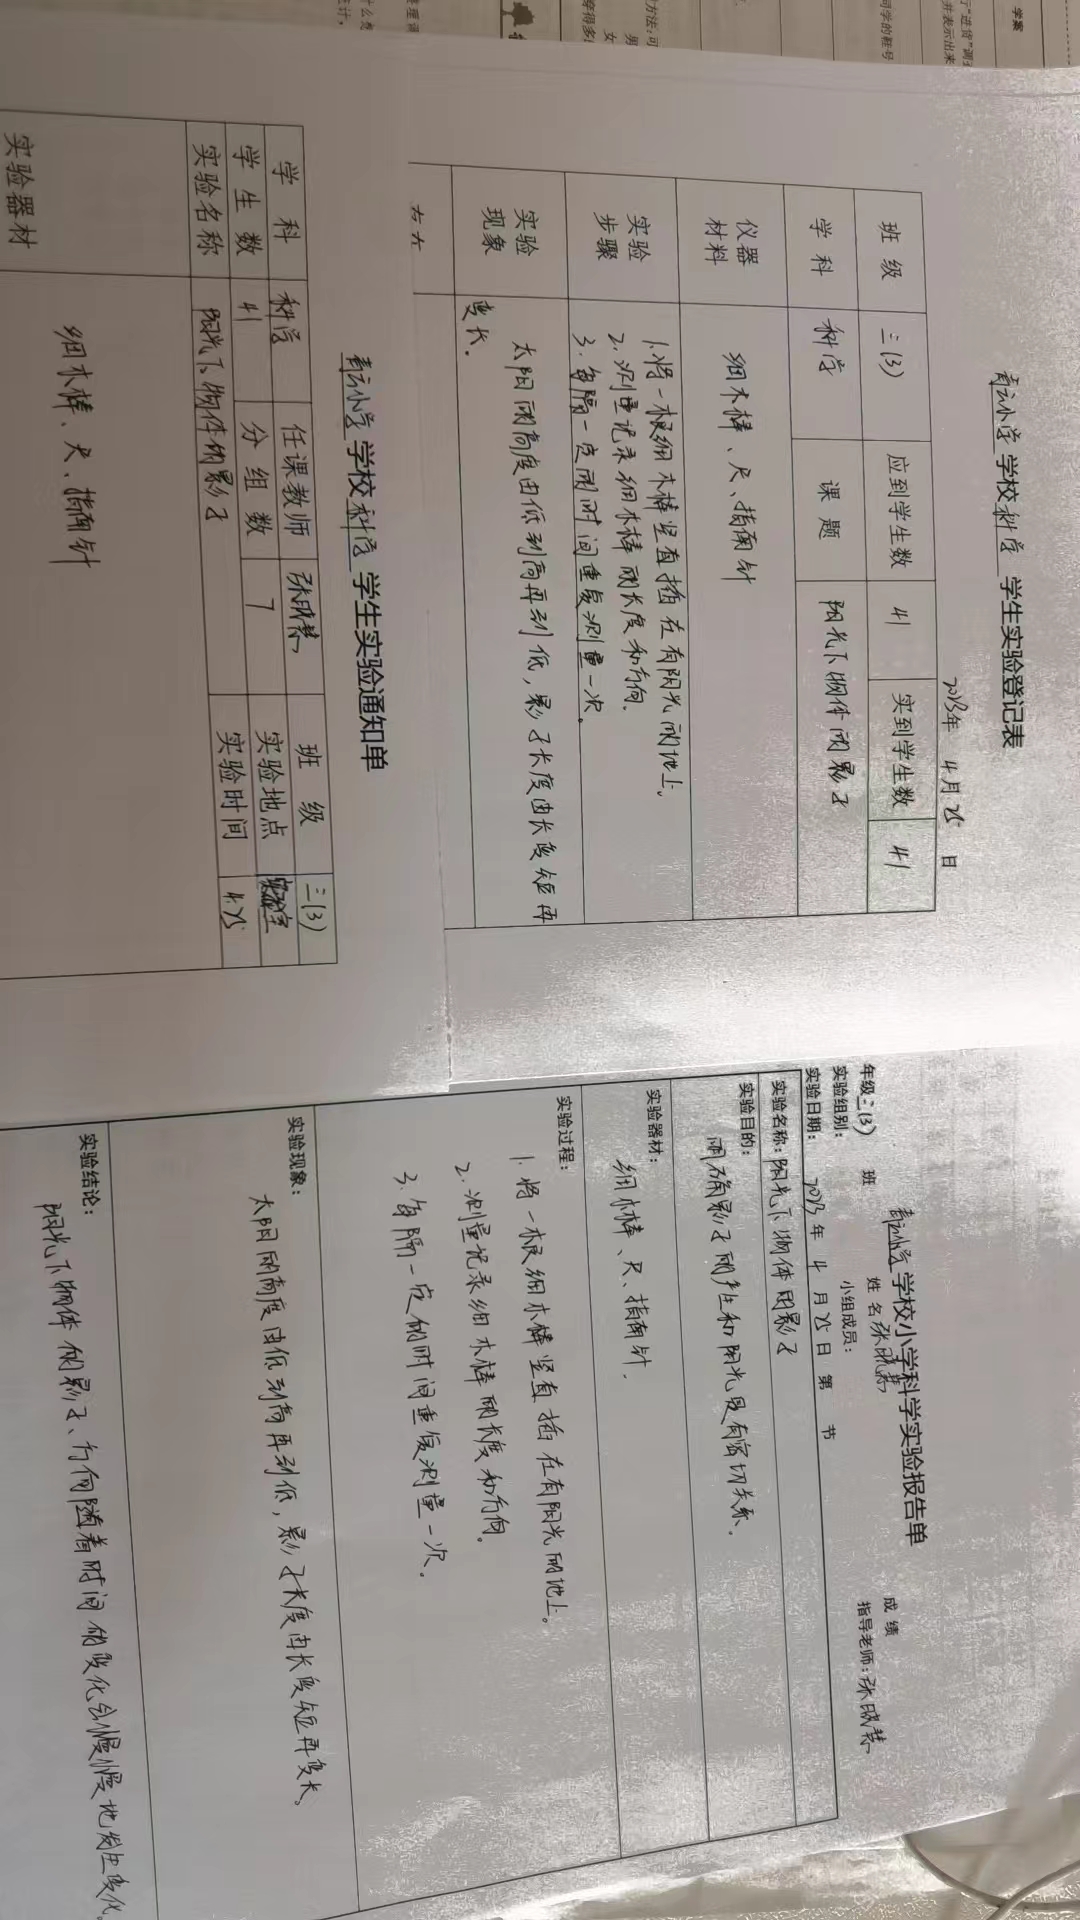 学校科学 学生实验登记表
2023年 4月25日
班级 三(3) 应到学生数 41 实到学生数 41
学科 科学 课题 阳光下物体的影子
仪器材料 细木棒、尺、指南针
实验步骤 1.将一根细木棒竖直插在有阳光的地上。
2.测量记录细木棒的长度和方向。
3.每隔一定的时间重复测量一次。
实验现象 太阳的高度由低到高再到低,影子长度由长变短再
变长。
学校科学 学生实验通知单
学科 科学 任课教师 班级 三(3)
学生数 41 分组数 7 实验地点 实验室
实验名称 阳光下物体的影子 实验时间 4.25
实验器材 细木棒、尺、指南针
学校小学科学实验报告单
成绩
年级三(3) 班 姓名
指导老师:
实验组别: 小组成员:
实验日期: 2023年 4月25日 第 节
实验名称:阳光下物体的影子
实验目的:
明确影子的产生和阳光是有密切关系。
实验器材:
细木棒、尺、指南针.
实验过程:
1.将一根细木棒竖直插在有阳光的地上。
2.测量记录细木棒的长度和方向。
3.每隔一定的时间重复测量一次。
实验现象:
太阳的高度由低到高再到低,影子长度由长变短再变长。
实验结论:
阳光下物体的影子、方向随着时间的变化会慢慢地发生变化。